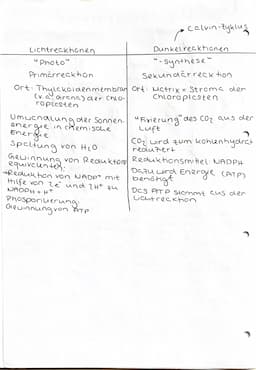 Calvin-Zyklus
Lichtreaktionen
"Photo"
Primärreaktion
Ort: Thylakoidenmembran
(v.a. Grana) der Chlo-
roplasten
Umwandlung der Sonnen-
energie in chemische
Energie
Spaltung von H₂O
Gewinnung von Reduktions-
equivalenten:
→ Reduktion von NADP⁺ mit
Hilfe von 2e⁻ und 2H⁺ zu
NADPH+H⁺
Phosporilierung:
Gewinnung von ATP
Dunkelreaktionen
"-synthese"
Sekundärreaktion
Ort: Matrix = Stroma der
Chloroplasten
"Fixierung" des CO₂ aus der
Luft
CO₂ wird zum Kohlenhydrat
reduziert
Reduktionsmittel: NADPH
Dazu wird Energie (ATP)
benötigt
Das ATP stammt aus der
Lichtreaktion